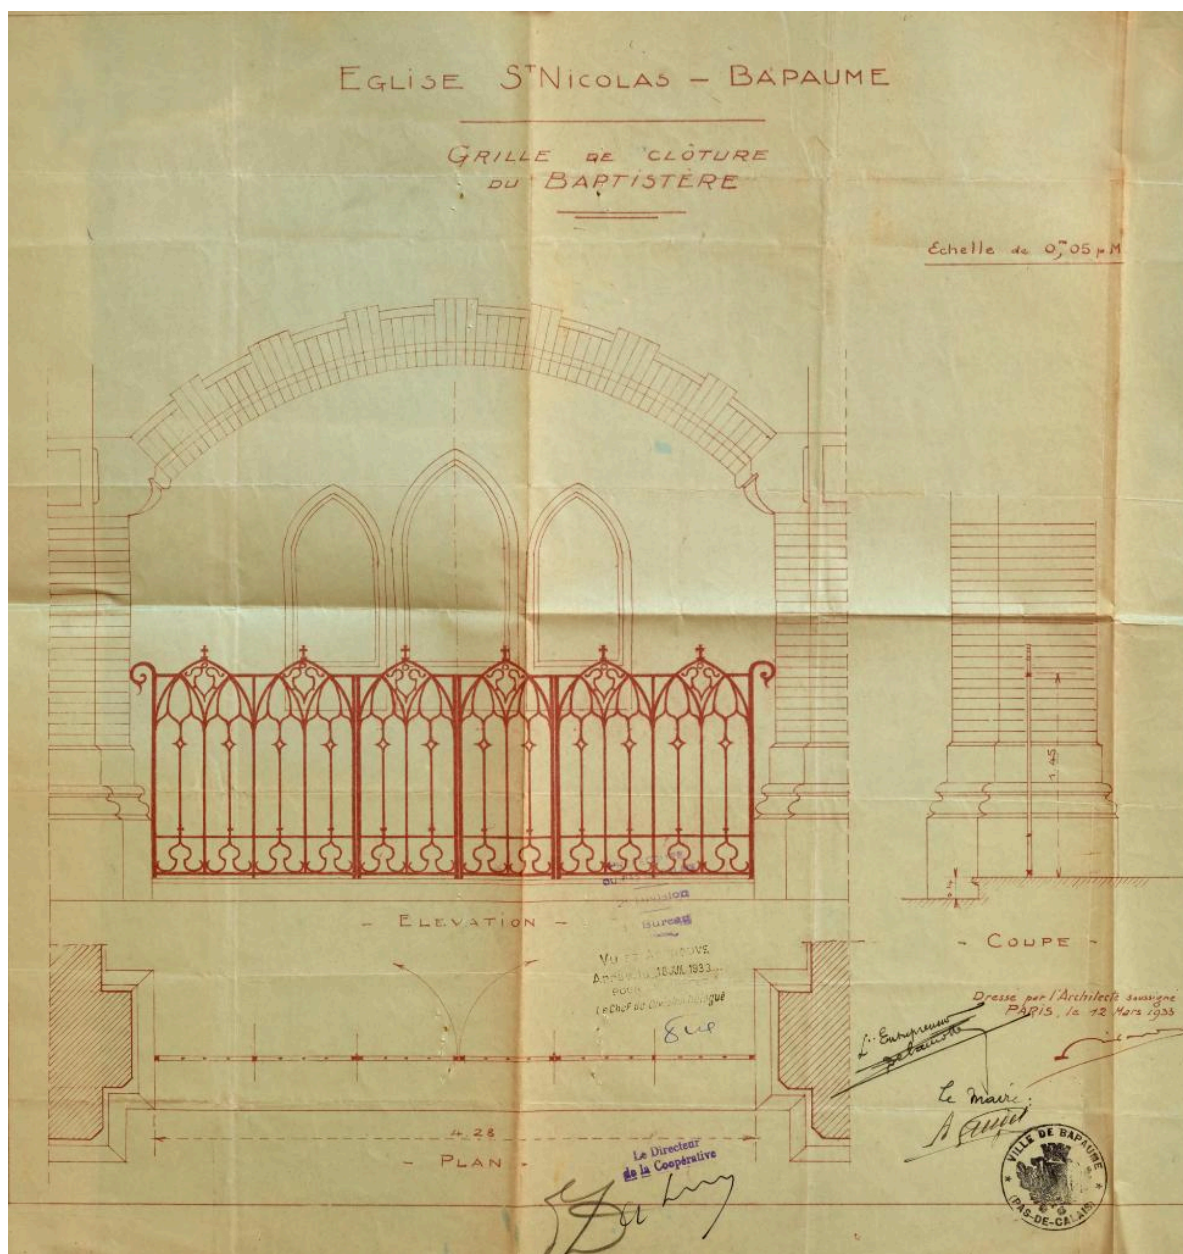 EGLISE ST NICOLAS - BAPAUME
GRILLE DE CLÔTURE
DU BAPTISTÈRE
Echelle de 0m,05 p M
1,45
- ELEVATION -
Division
Bureau
VU ET APPROUVÉ
18 JUIL 1933
POUR
Le Chef de Division Délégué
- COUPE -
Dressé par l'Architecte soussigné
PARIS, le 12 Mars 1933
L'Entrepreneur
Le Maire:
4,28
- PLAN -
Le Directeur
de la Coopérative
VILLE DE BAPAUME
(PAS-DE-CALAIS)